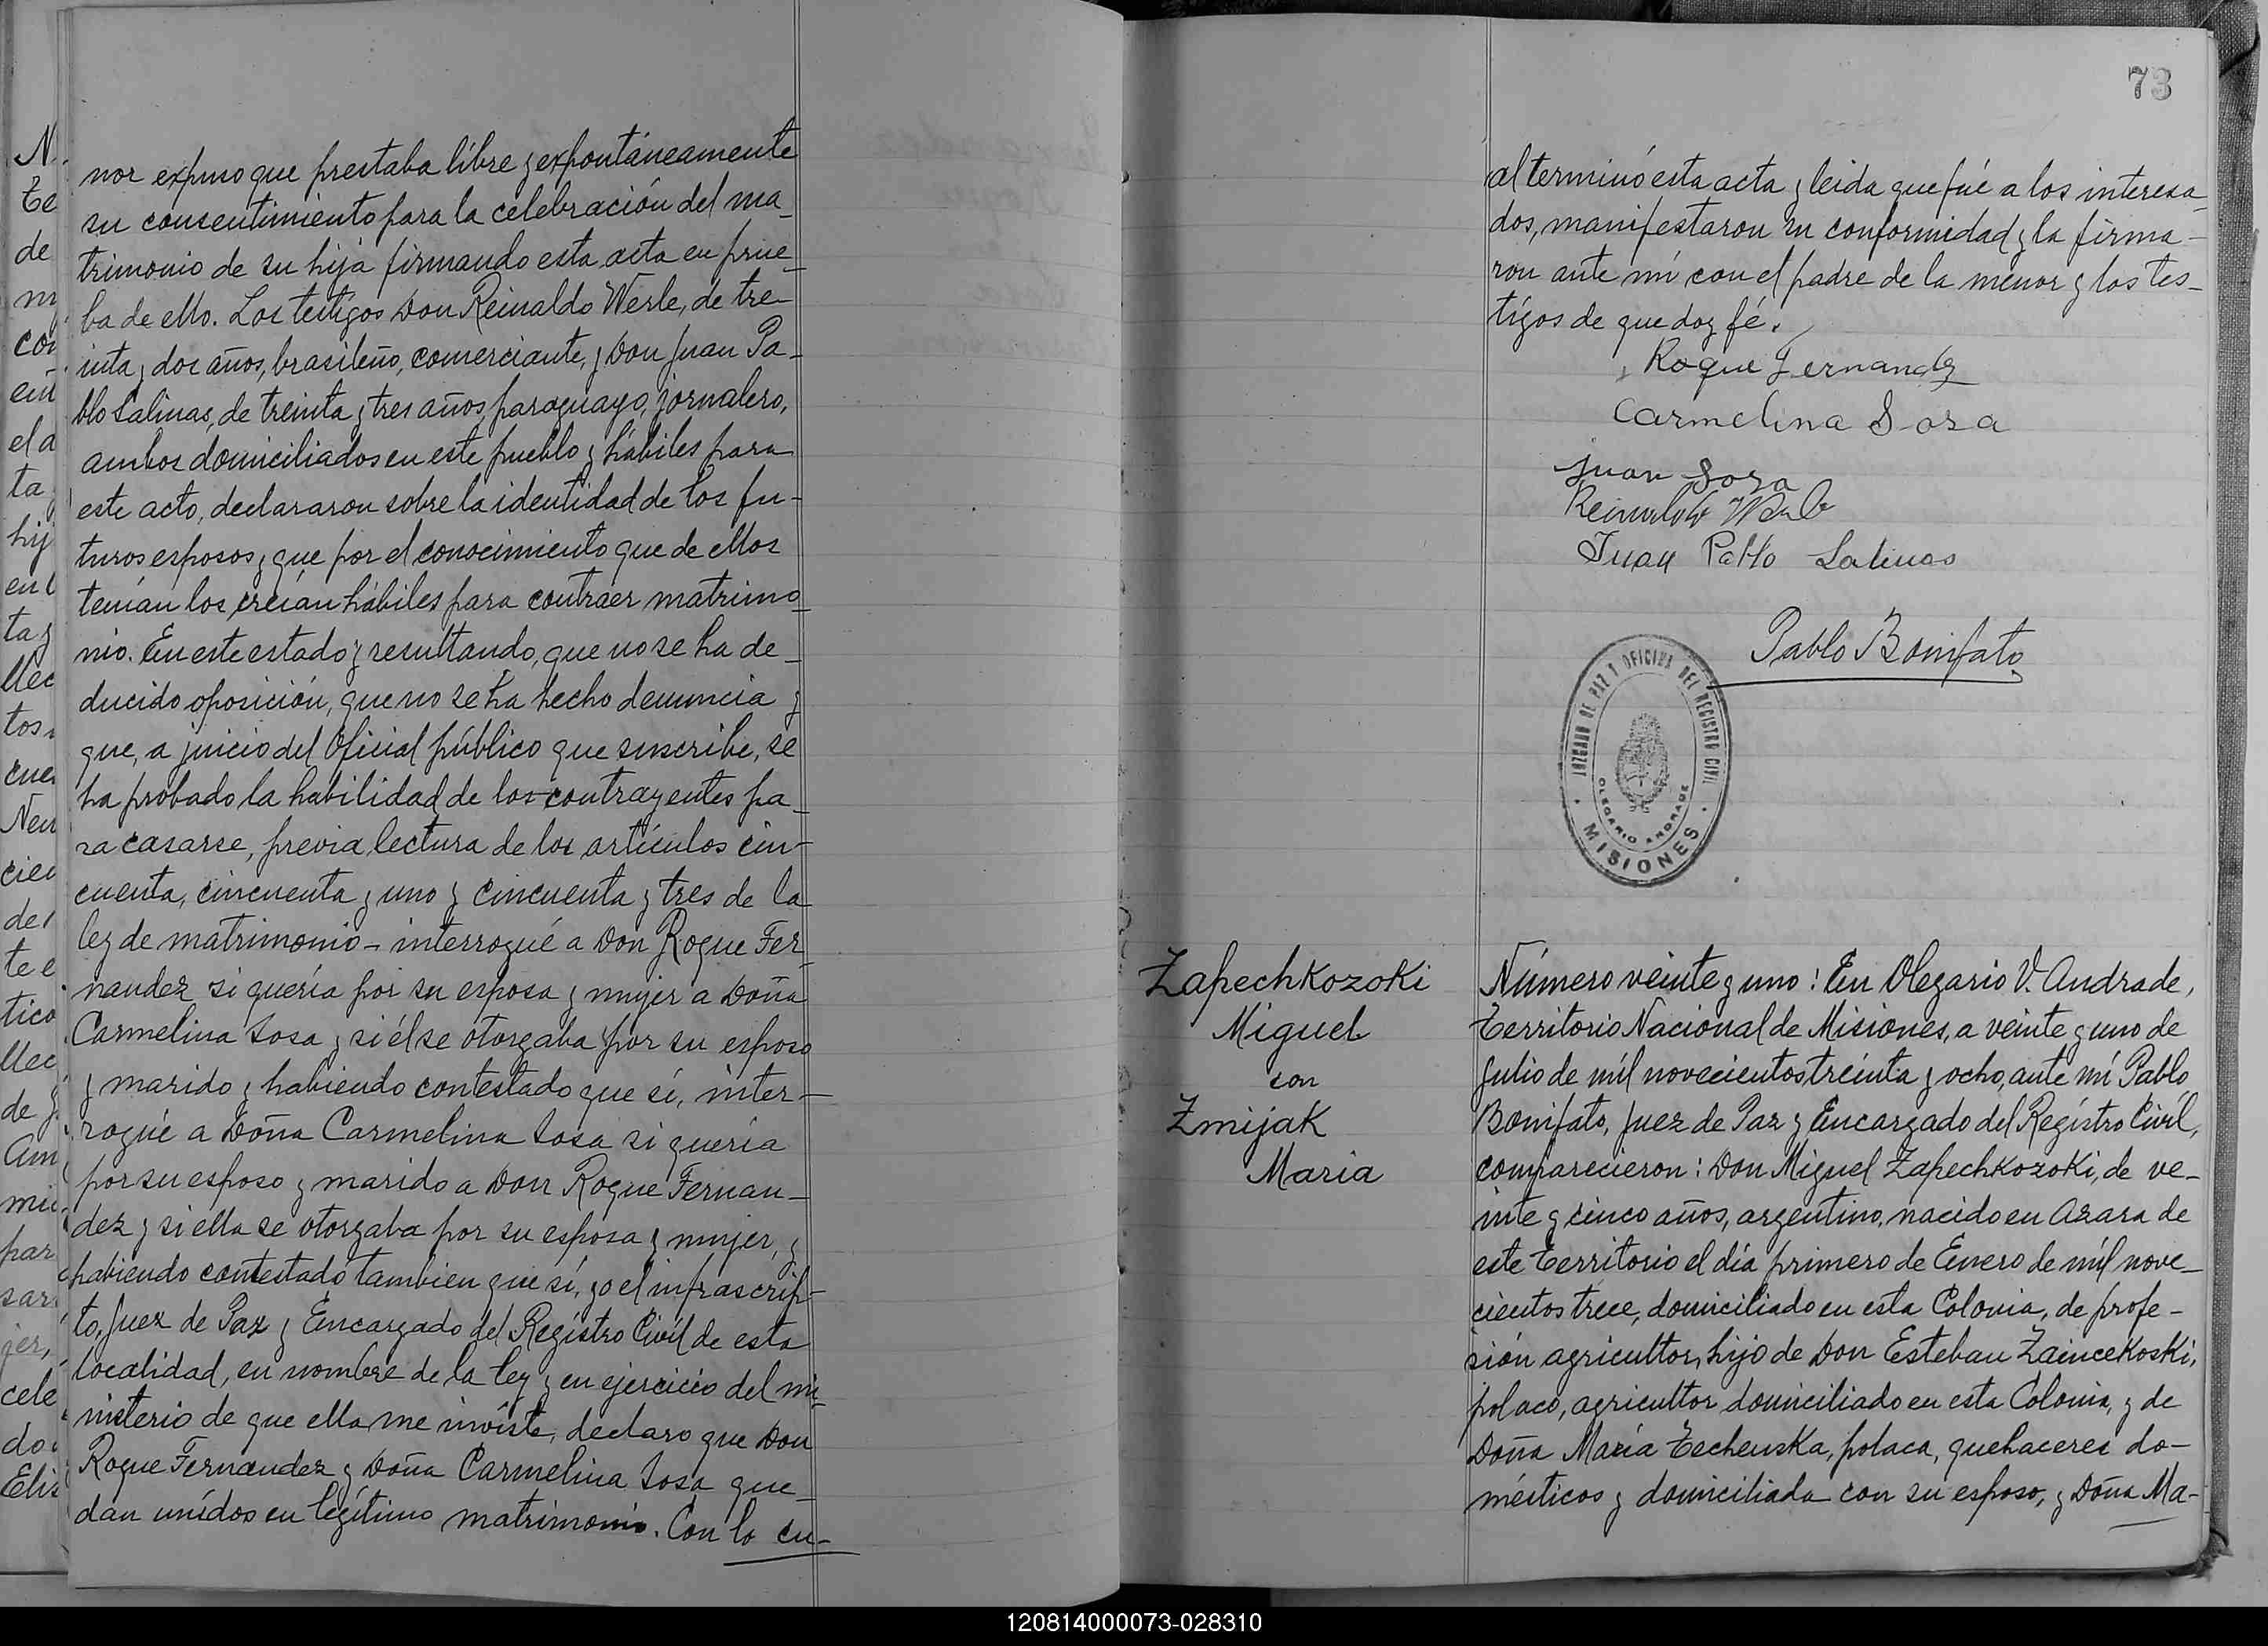 nor expuso que prestaba libre y expontáneamente
su consentimiento para la celebración del ma-
trimonio de su hija firmando esta acta en prue-
ba de ello. Los testigos Don Reinaldo Werle, de tre-
inta y dos años, brasileño, comerciante, y Don Juan Pa-
blo Salinas, de treinta y tres años, paraguayo, jornalero,
ambos domiciliados en este pueblo y hábiles para
este acto, declararon sobre la identidad de los fu-
turos esposos y que por el conocimiento que de ellos
tenían los creían hábiles para contraer matrimo-
nio. En este estado y resultando, que no se ha de-
ducido oposición, que no se ha hecho denuncia y
que, a juicio del Oficial público que suscribe, se
ha probado la habilidad de los contrayentes pa-
ra casarse, previa lectura de los artículos cin-
cuenta, cincuenta y uno y cincuenta y tres de la
ley de matrimonio - interrogué a Don Roque Fer-
nandez si quería por su esposa y mujer a Doña
Carmelina Sosa y si él se otorgaba por su esposo
y marido y habiendo contestado que sí, inter-
rogué a Doña Carmelina Sosa si quería
por su esposo y marido a Don Roque Fernan-
dez y si ella se otorgaba por su esposa y mujer, y
habiendo contestado tambien que sí, yo el infrascrip-
to, Juez de Paz y Encargado del Registro Civil de esta
localidad, en nombre de la ley y en ejercicio del mi-
nisterio de que ella me inviste, declaro que Don
Roque Fernandez y Doña Carmelina Sosa que-
dan unidos en legítimo matrimonio. Con lo cu-
73
al terminó esta acta y leida que fué a los interesa-
dos, manifestaron su conformidad y la firma-
ron ante mí con el padre de la menor y los tes-
tigos de que doy fé.
Roque Fernandez
Carmelina Sosa
Juan Sosa
Reinaldo Werle
Juan Pablo Salinas
Pablo Bonifato
JUZGADO DE PAZ Y OFICINA DEL REGISTRO CIVIL
OLEGARIO ANDRADE
MISIONES
Zapechkozoki
Miguel
con
Zmijak
Maria
Número veinte y uno: En Olegario V. Andrade,
Territorio Nacional de Misiones, a veinte y uno de
Julio de mil novecientos treinta y ocho, ante mí Pablo
Bonifato, Juez de Paz y Encargado del Registro Civil,
comparecieron: Don Miguel Zapechkozoki, de ve-
inte y cinco años, argentino, nacido en Azara de
este Territorio el día primero de Enero de mil nove-
cientos trece, domiciliado en esta Colonia, de profe-
sión agricultor, hijo de Don Esteban Zaincekoski,
polaco, agricultor domiciliado en esta Colonia, y de
Doña María Techenska, polaca, quehaceres do-
mésticos y domiciliada con su esposo, y Doña Ma-
120814000073-028310